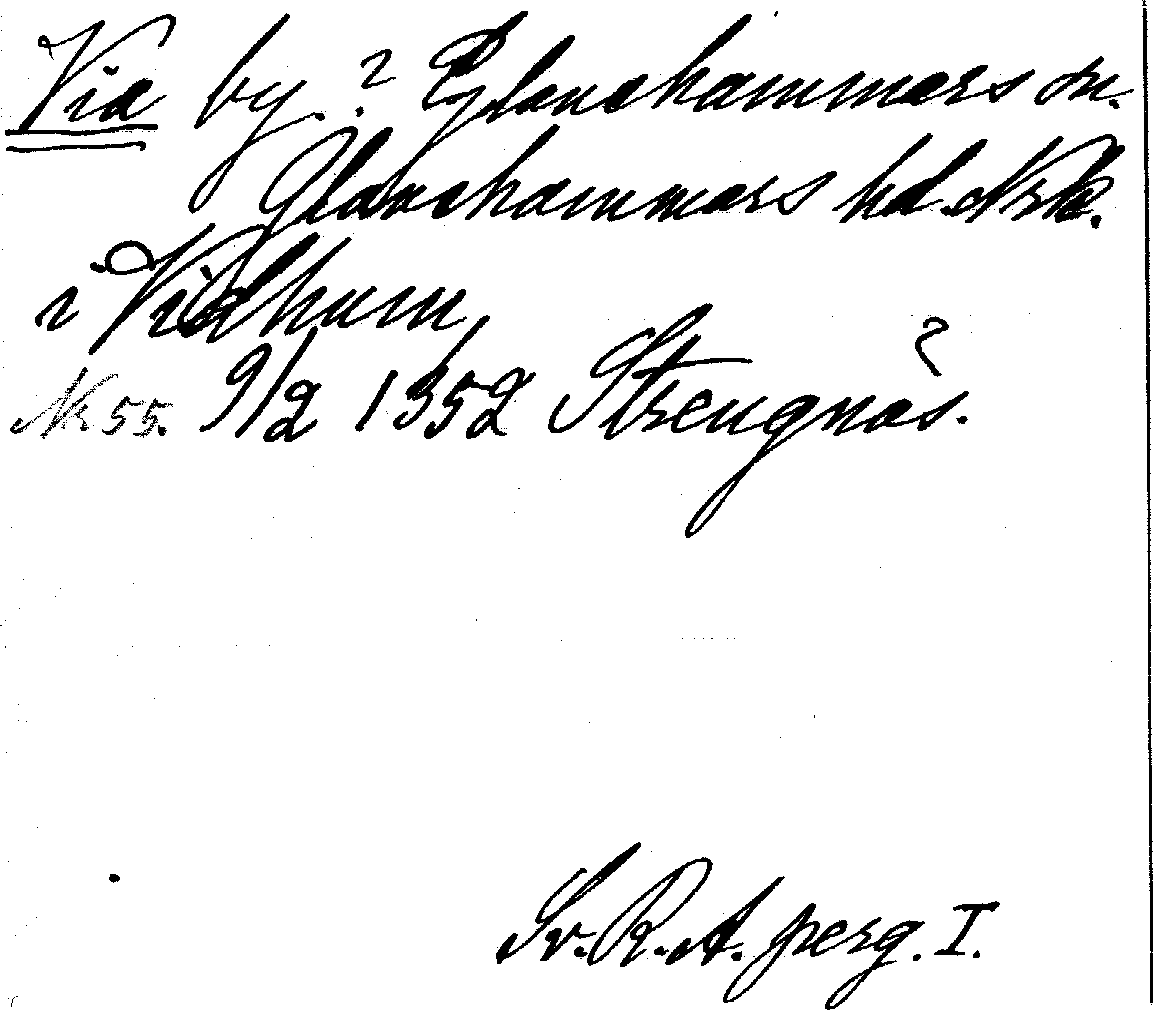 Via by. ? Glanshammars sn.
Glanshammars hd. Nrk.
i Vidhum
Nr 55. 9/2 1352 Strengnäs.
Sv. R. A. perg. I.